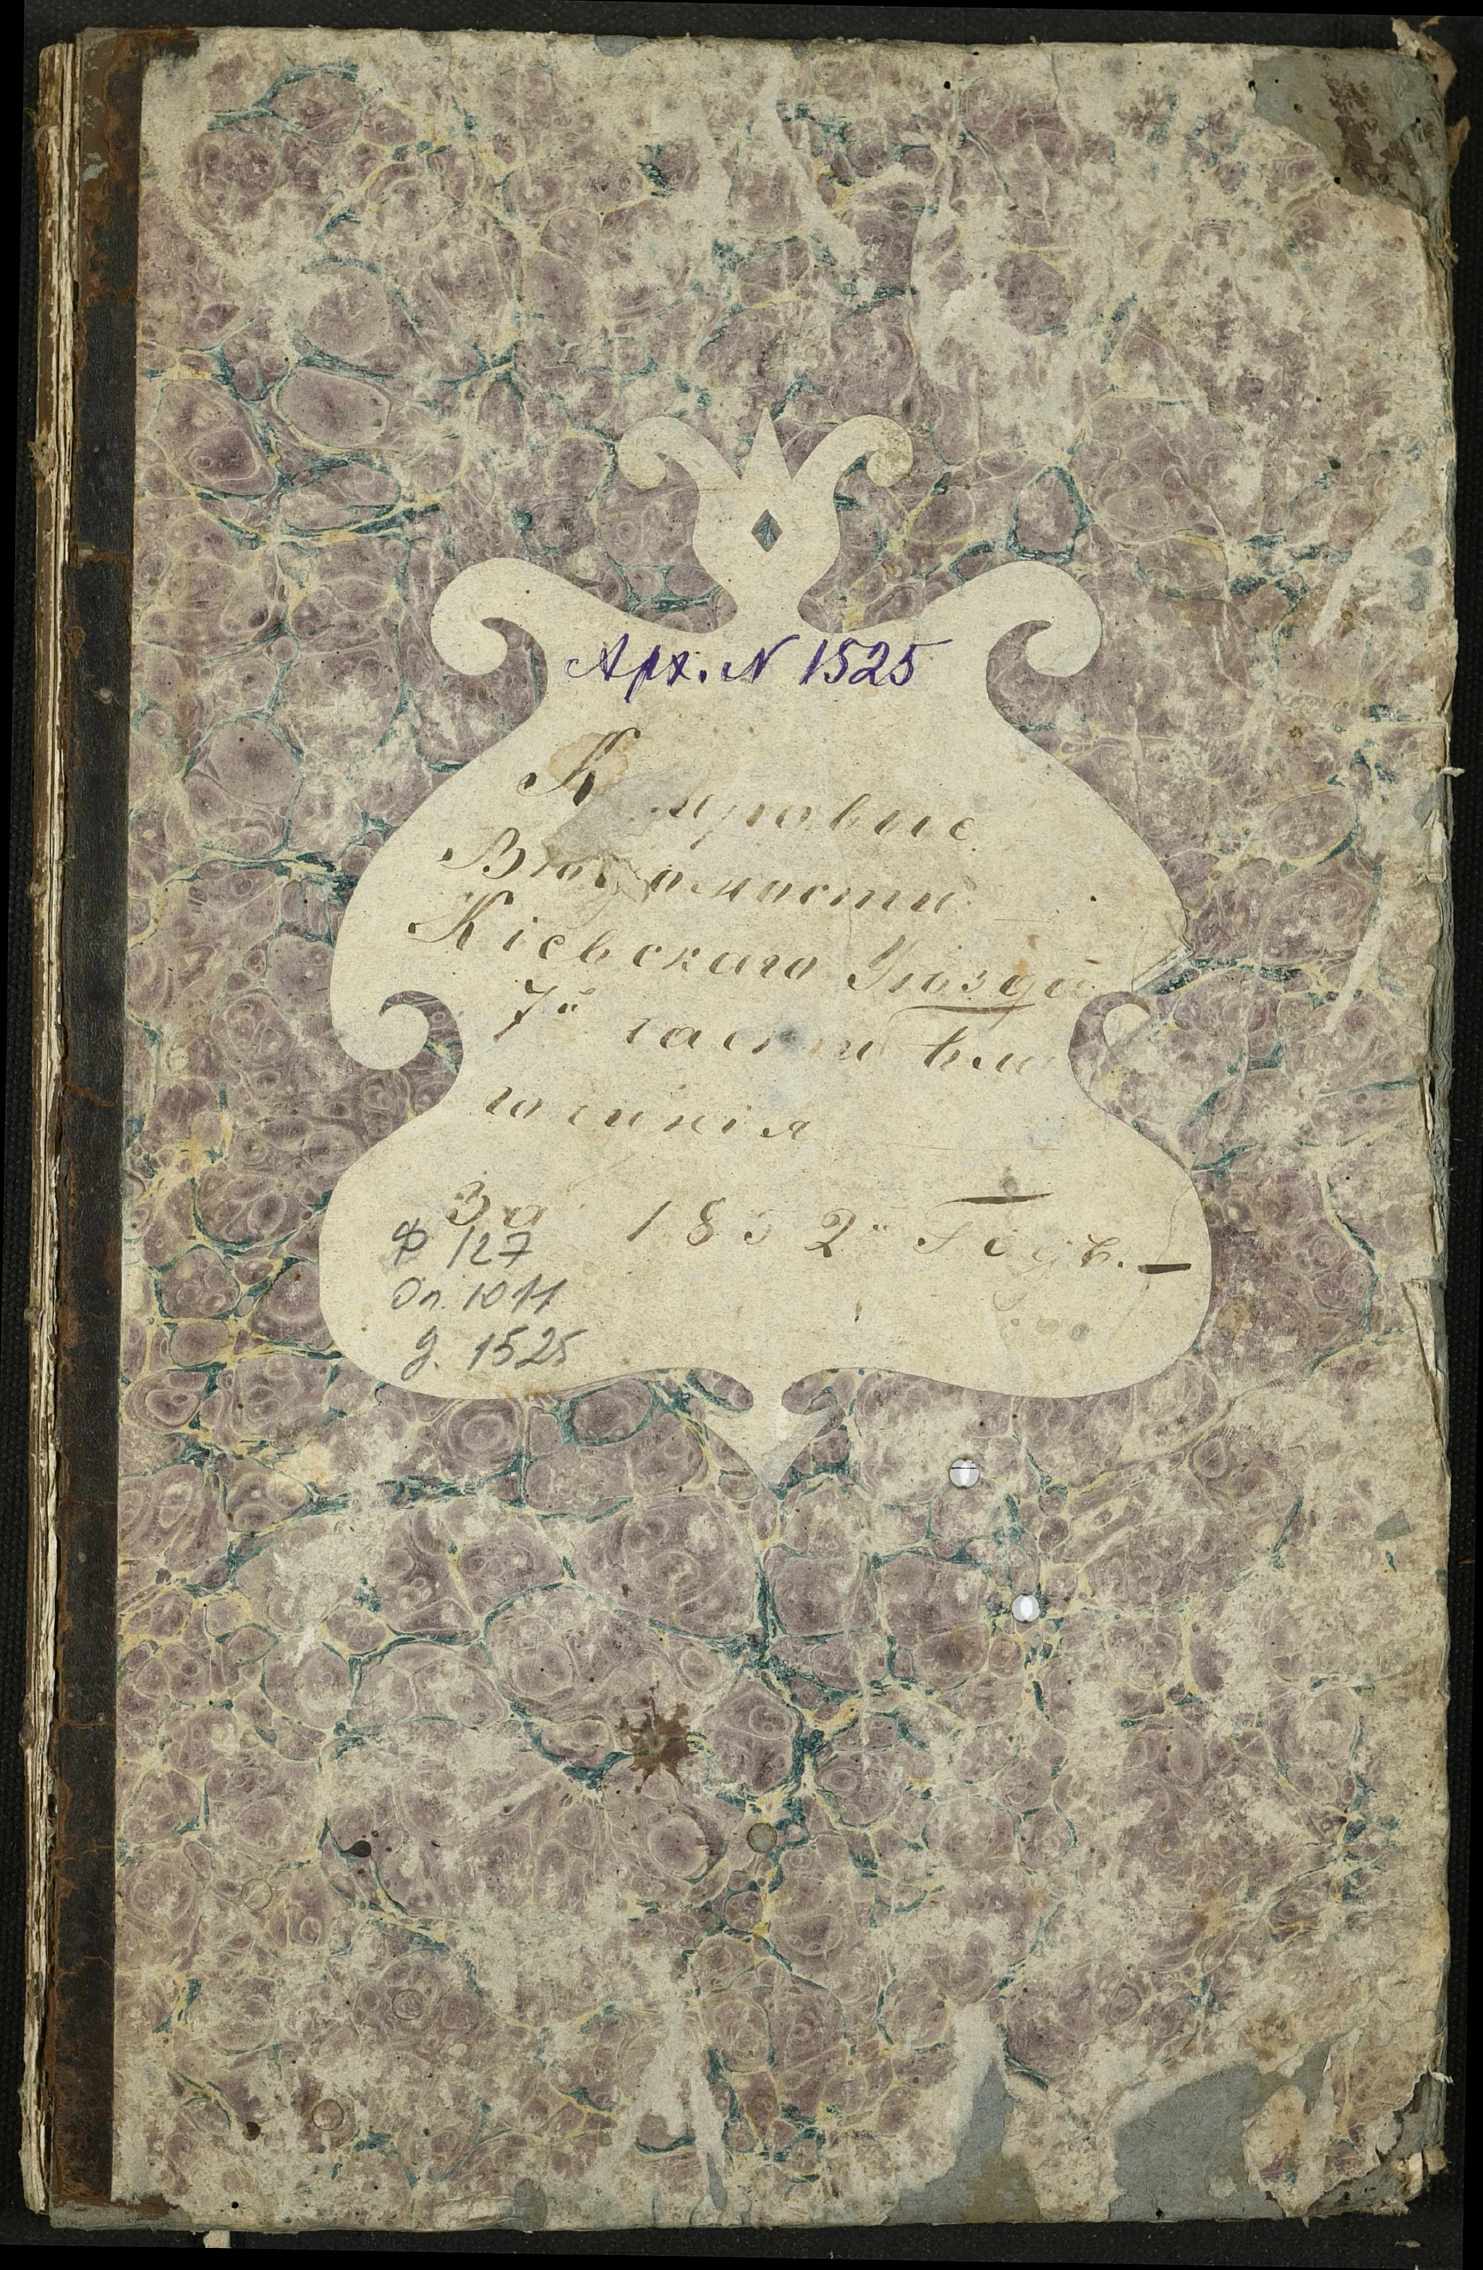 Арх. N 1525
Вѣдомости
Кіевскаго Уѣзда
7й части Бла
гочинія
За 1852й Годъ.
Ф 127
Оп. 1011
д. 1525